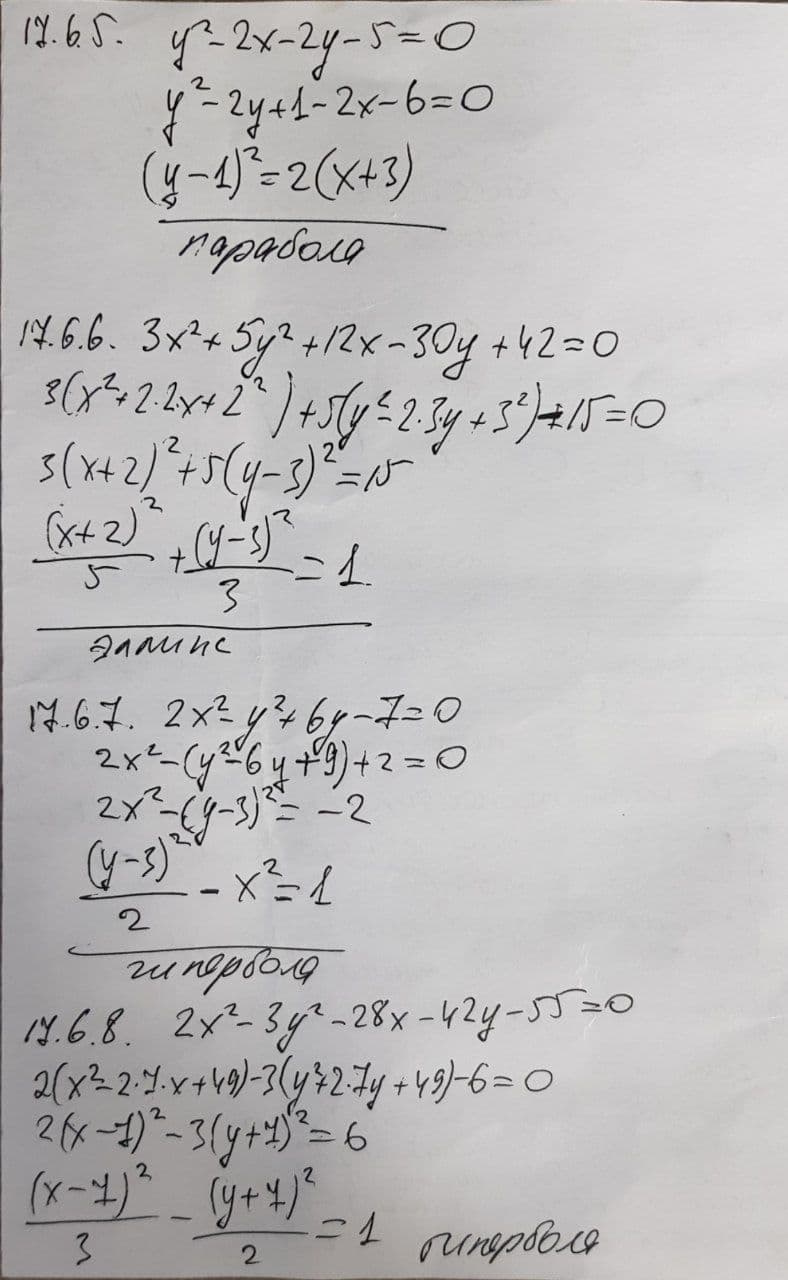 17.6.5. y²-2x-2y-5=0
y²-2y+1-2x-6=0
(y-1)²=2(x+3)
парабола
17.6.6. 3x²+5y²+12x-30y+42=0
3(x²+2·2x+2²)+5(y²-2·3y+3²)-15=0
3(x+2)²+5(y-3)²=15
(x+2)²/5 + (y-3)²/3 = 1.
эллипс
17.6.7. 2x²-y²+6y-7=0
2x²-(y²-6y+9)+2=0
2x²-(y-3)²=-2
(y-3)²/2 - x²=1
гипербола
17.6.8. 2x²-3y²-28x-42y-55=0
2(x²-2·7·x+49)-3(y²+2·7y+49)-6=0
2(x-7)²-3(y+7)²=6
(x-7)²/3 - (y+7)²/2 = 1 гипербола